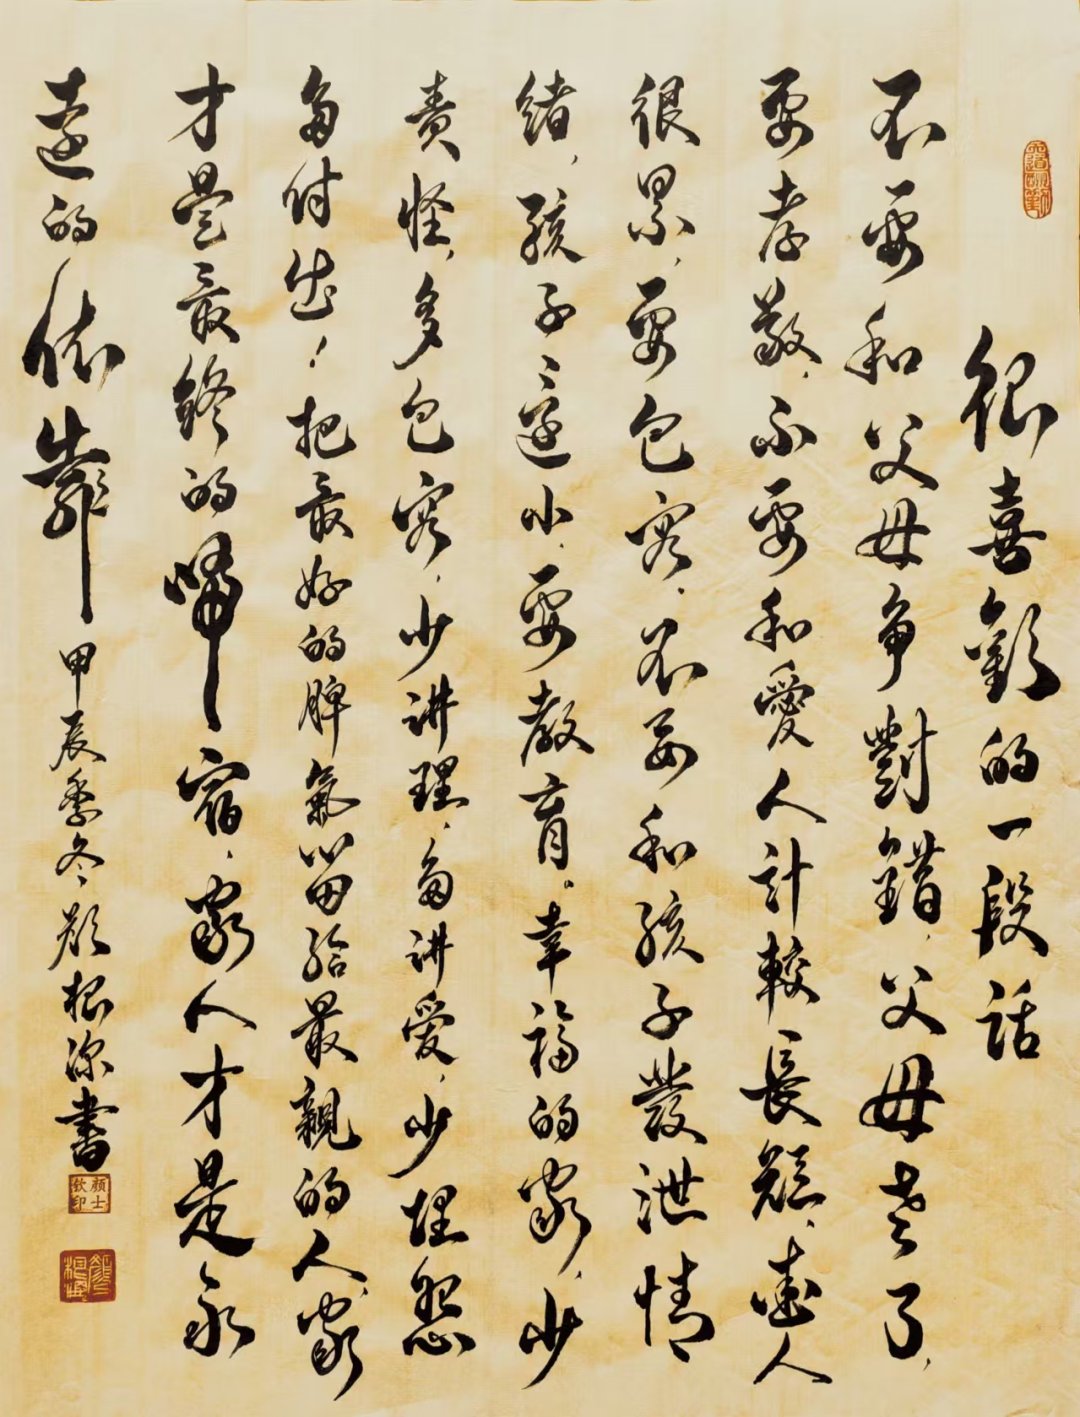 很喜歡的一段话
不要和父母争對錯,父母老了,
要孝敬,不要和愛人計較長短,爱人
很累,要包容,不要和孩子發泄情
绪,孩子還小,要教育。幸福的家,少
责怪,多包容,少讲理,多讲爱,少埋怨
多付出!把最好的脾氣留给最親的人,家
才是最终的歸宿,家人才是永
遠的依靠 甲辰季冬颜根深書
顏士欽印